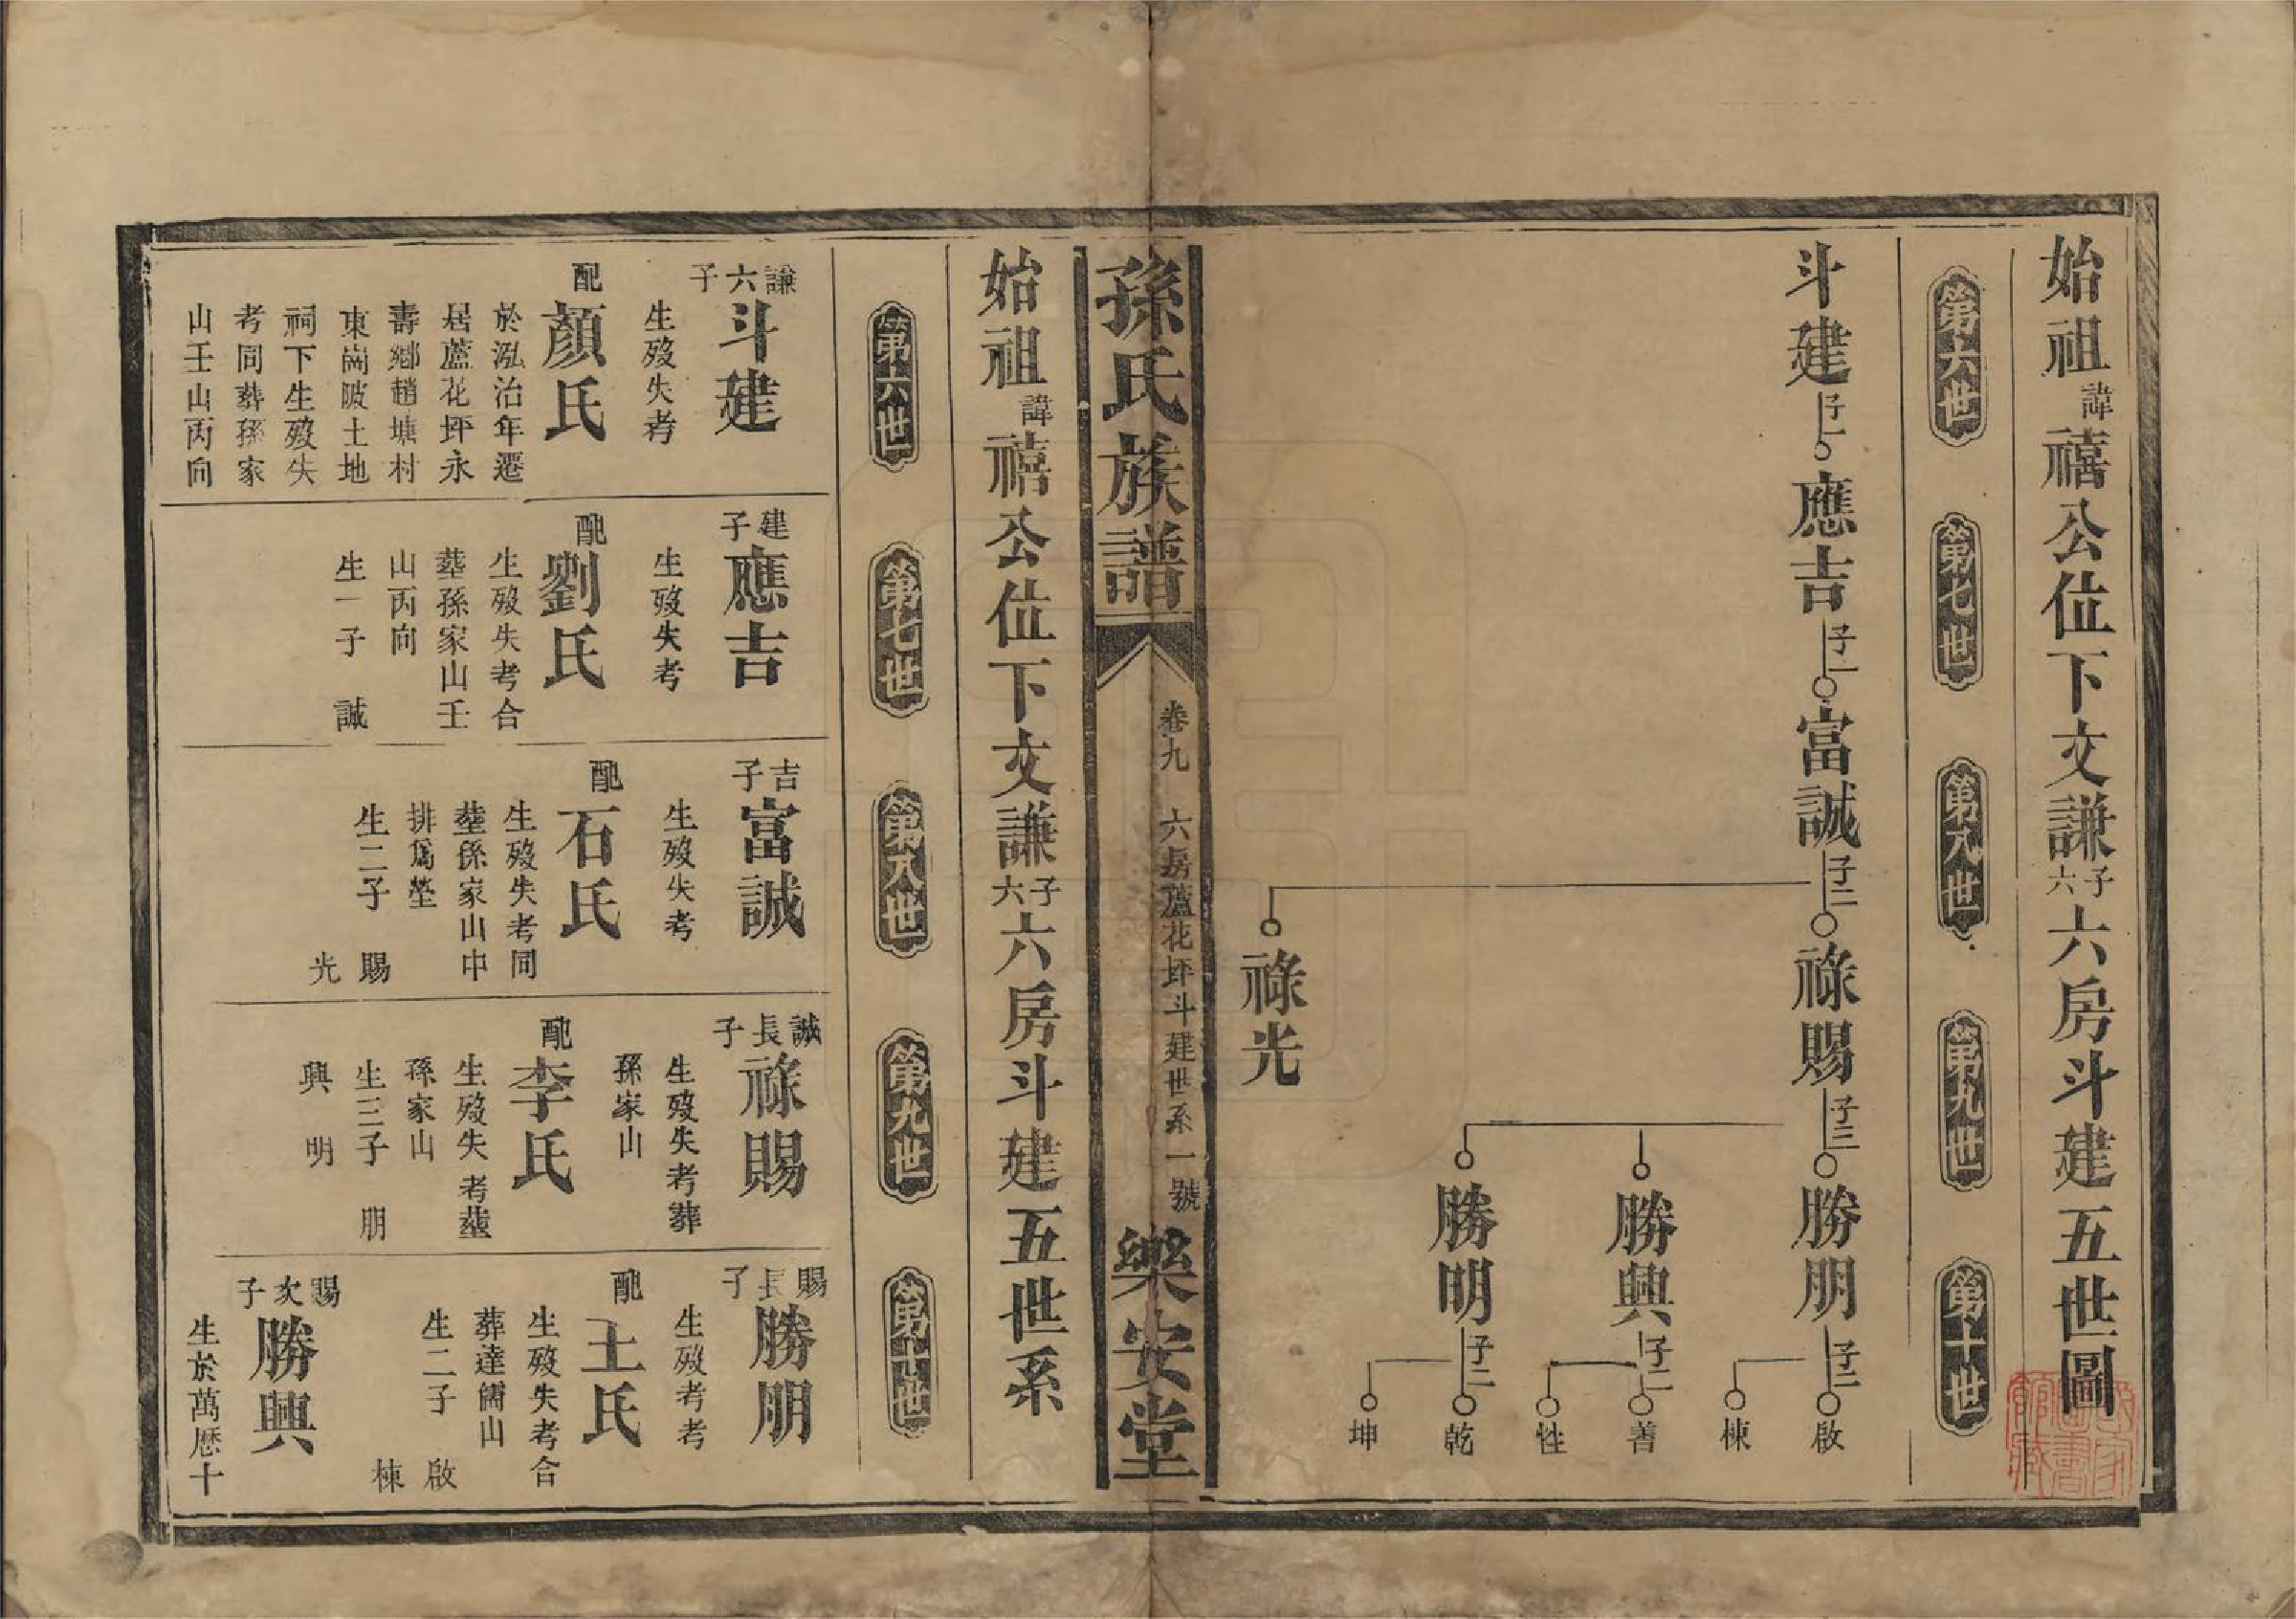 始祖諱禧公位下文謙六子六房斗建五世圖
第六世
第七世
第八世
第九世
第十世
斗建 子一
應吉 子一
富誠 子二
祿賜 子三
勝朋 子二
啟
棟
勝興 子二
善
性
勝明 子二
乾
坤
祿光
孫氏族譜
卷九 六房蘆花坪斗建世系 一號
樂安堂
始祖諱禧公位下文謙六子六房斗建五世系
第六世
第七世
第八世
第九世
第十世
謙六子
斗建
生歿失考
配
顏氏
於泓治年遷
居蘆花坪永
壽鄉趙塘村
東崗陂土地
祠下生歿失
考同葬孫家
山壬山丙向
建子
應吉
生歿失考
配
劉氏
生歿失考合
塟孫家山壬
山丙向
生一子 誠
吉子
富誠
生歿失考
配
石氏
生歿失考同
塟孫家山中
排為塋
生二子 賜
光
誠長子
祿賜
生歿失考葬
孫家山
配
李氏
生歿失考塟
孫家山
生三子 朋
興 明
賜長子
勝朋
生歿考考
配
土氏
生歿失考合
葬達僑山
生二子 啟
棟
賜次子
勝興
生於萬歷十